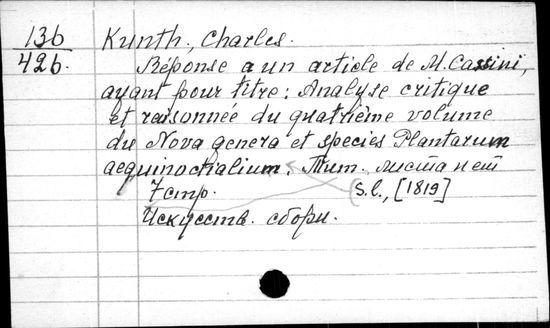 136
426.
Kunth, Charles.
Réponse a un article de M. Cassini,
ayant pour titre: Analyse critique
et raisonnée du quatrième volume
du Nova genera et species Plantarum
aequinoctialium. Тит. листа нет
7 стр. (s.l., [1819]
Искусств. сборн.